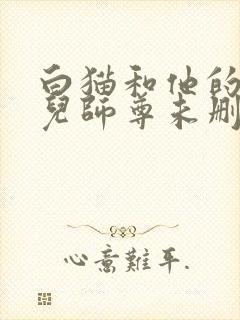 白猫和他的
兒師尊未刪
心意難平.